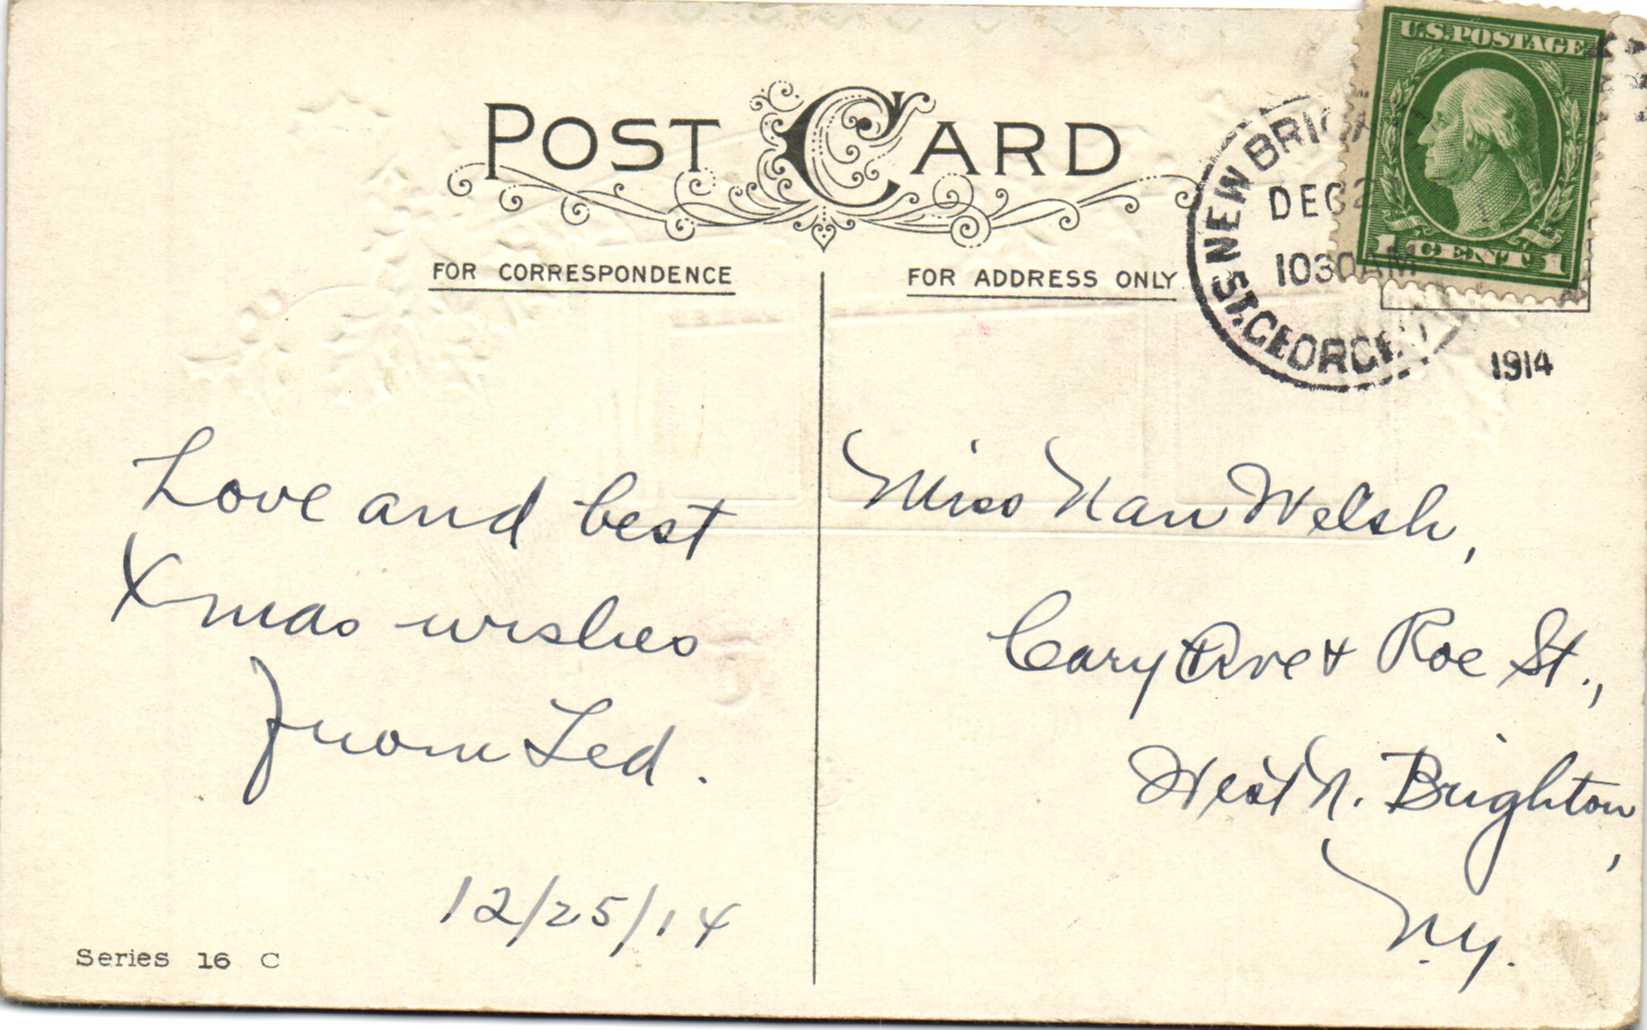 POST CARD
FOR CORRESPONDENCE
FOR ADDRESS ONLY
U.S. POSTAGE
1 CENT 1
NEW BRIGH
DEC 2
1030 AM
ST. GEORGE
1914
Love and best
Xmas wishes
from Ted.
12/25/14
Series 16 C
Miss Nan Welsh,
Cary Ave & Roe St.,
West N. Brighton,
N.Y.